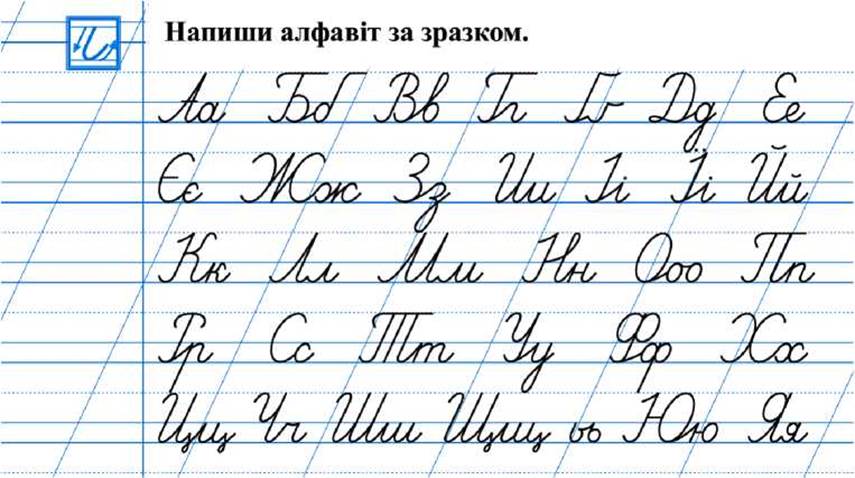 Напиши алфавіт за зразком.
Аа Бб Вв Гг Ґґ Дд Ее
Єє Жж Зз Ии Іі Її Йй
Кк Лл Мм Нн Ооо Пп
Рр Сс Тт Уу Фф Хх
Цц Чч Шш Щщ ьь Юю Яя